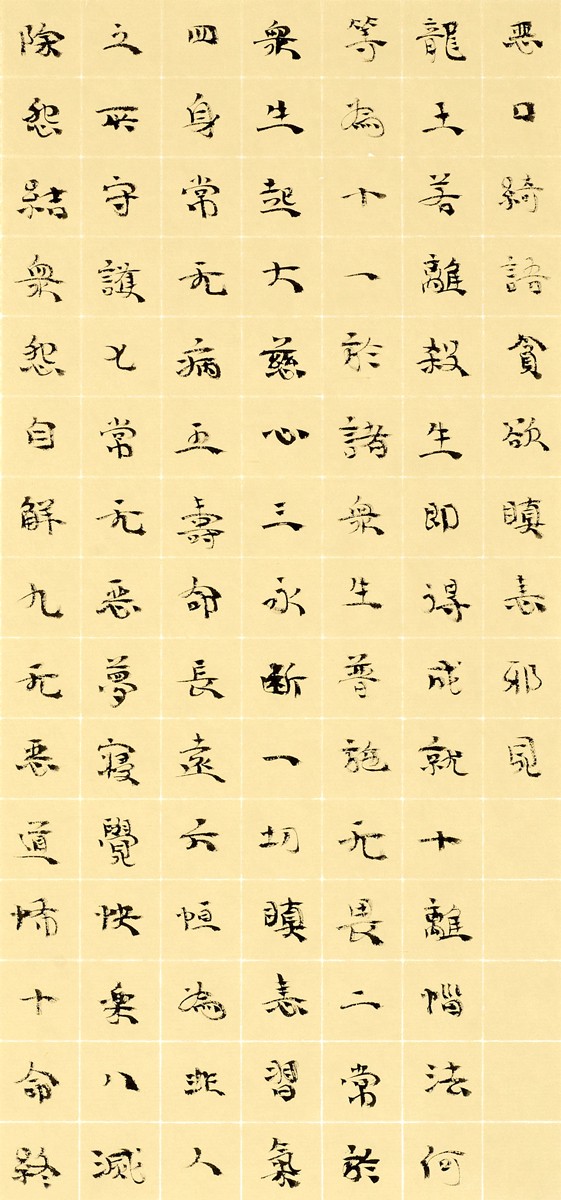 恶口綺語貪欲瞋恚邪見
龍王若離殺生即得成就十離惱法何
等為十一於諸衆生普施无畏二常於
衆生起大慈心三永断一切瞋恚習氣
四身常无病五壽命長遠六恒為非人
之所守護七常无恶夢寝覺快樂八滅
除怨結衆怨自解九无恶道怖十命終